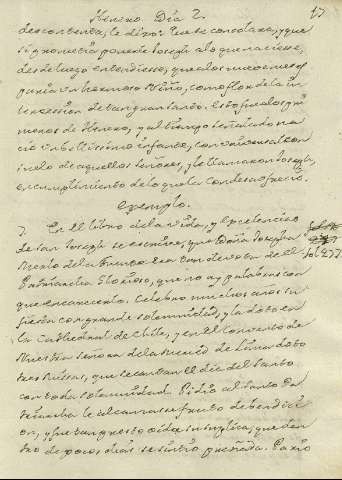 Henero Dia 2. 17
desconsuelo, le dixo: Que se consolara, y que
si gnometia ponerle Joseph alo que naciese,
desde luego entendiese, que alos nueve meses
pariria un hermoso Niño, como flor de la in
tercession de tan gran Santo. Esto fue alos pri
meros de Henero, y al tiempo señalado na
ció un bellissimo infante, con universal con
suelo de aquellos señores, y le llamaron Joseph,
en cumplimiento de lo que la Condesa ofreció.
Exemplo.
7. En el libro de la vida, y Excelencias
de San Joseph se escrive, que Doña Josepha
de la era tan devota de el
Patriarcha Glorioso, que no ay palabras con
que encarecerlo. Celebró muchos años su
fiesta con grande solemnidad, y la dotó en
la Cathedral de Chile, y en el Convento de
Nuestra Señora de la Merced de Lima dotó
tres Missas, que se cantan el dia del Santo
con toda solemnidad. Pidió al Santo Pa
triarcha le alcanzase fruto de bendici
on, y fue tan presto oida su suplica, que den
tro de pocos dias se sintió preñada. Parió
fol. 237.